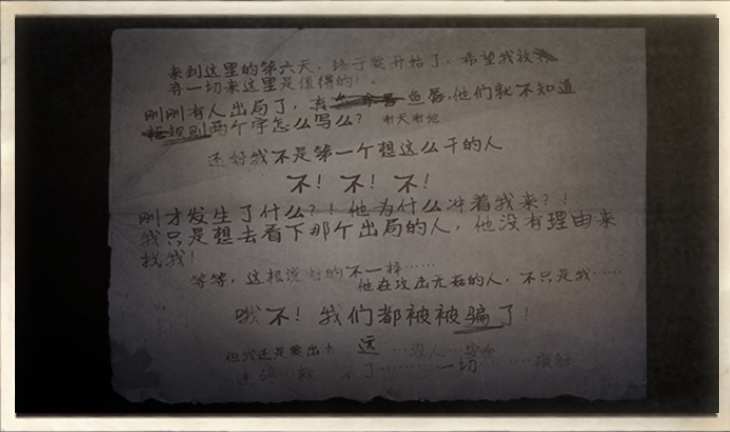 来到这里的第六天，终于要开始了，希望我放
弃一切来这里是值得的！
刚刚有人出局了，真 鱼唇，他们就不知道
规则两个字怎么写么？
还好我不是第一个想这么干的人
不！不！不！
刚才发生了什么？！他为什么冲着我来？！
我只是想去看下那个出局的人，他没有理由来
找我！
等等，这根说好的不一样……
他在攻击无辜的人，不只是我……
哦不！我们都被被骗了！
但我还是要出去 远 ……没人…安全
了 ……一切……